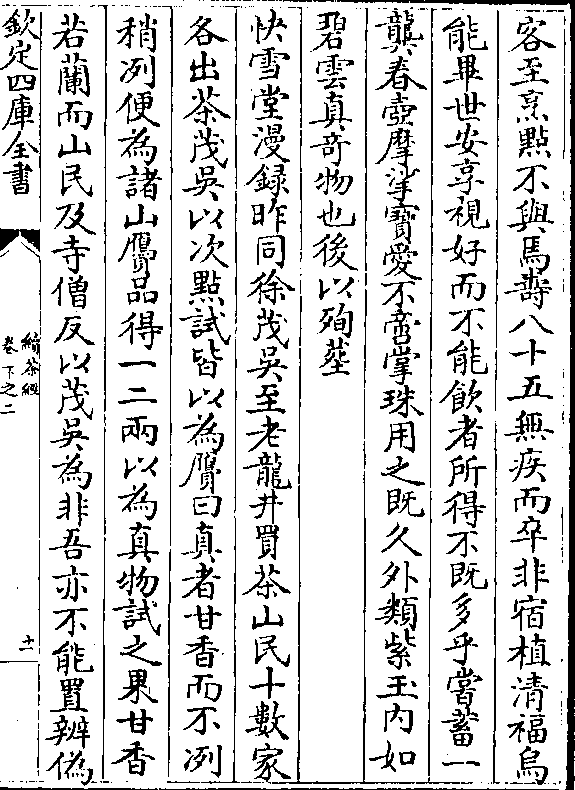 客至烹點不與焉壽八十五無疾而卒非宿植清福烏
能畢世安享視好而不能飲者所得不既多乎嘗蓄一
龔春壺摩挲寶愛不啻掌珠用之既久外類紫玉内如
碧雲真奇物也後以殉塟
快雪堂漫録昨同徐茂吳至老龍井買茶山民十數家
各出茶茂吳以次點試皆以為贋曰真者甘香而不冽
稍冽便為諸山贋品得一二兩以為真物試之果甘香
若蘭而山民及寺僧反以茂吳為非吾亦不能置辨偽
欽定四庫全書
續茶經
卷下之二
十一